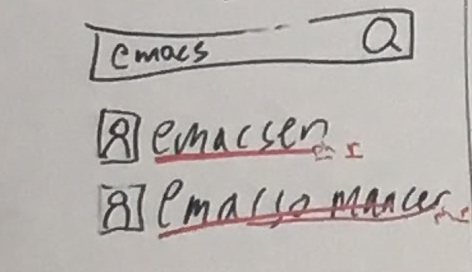 emacs
emacsen
emacsomancer